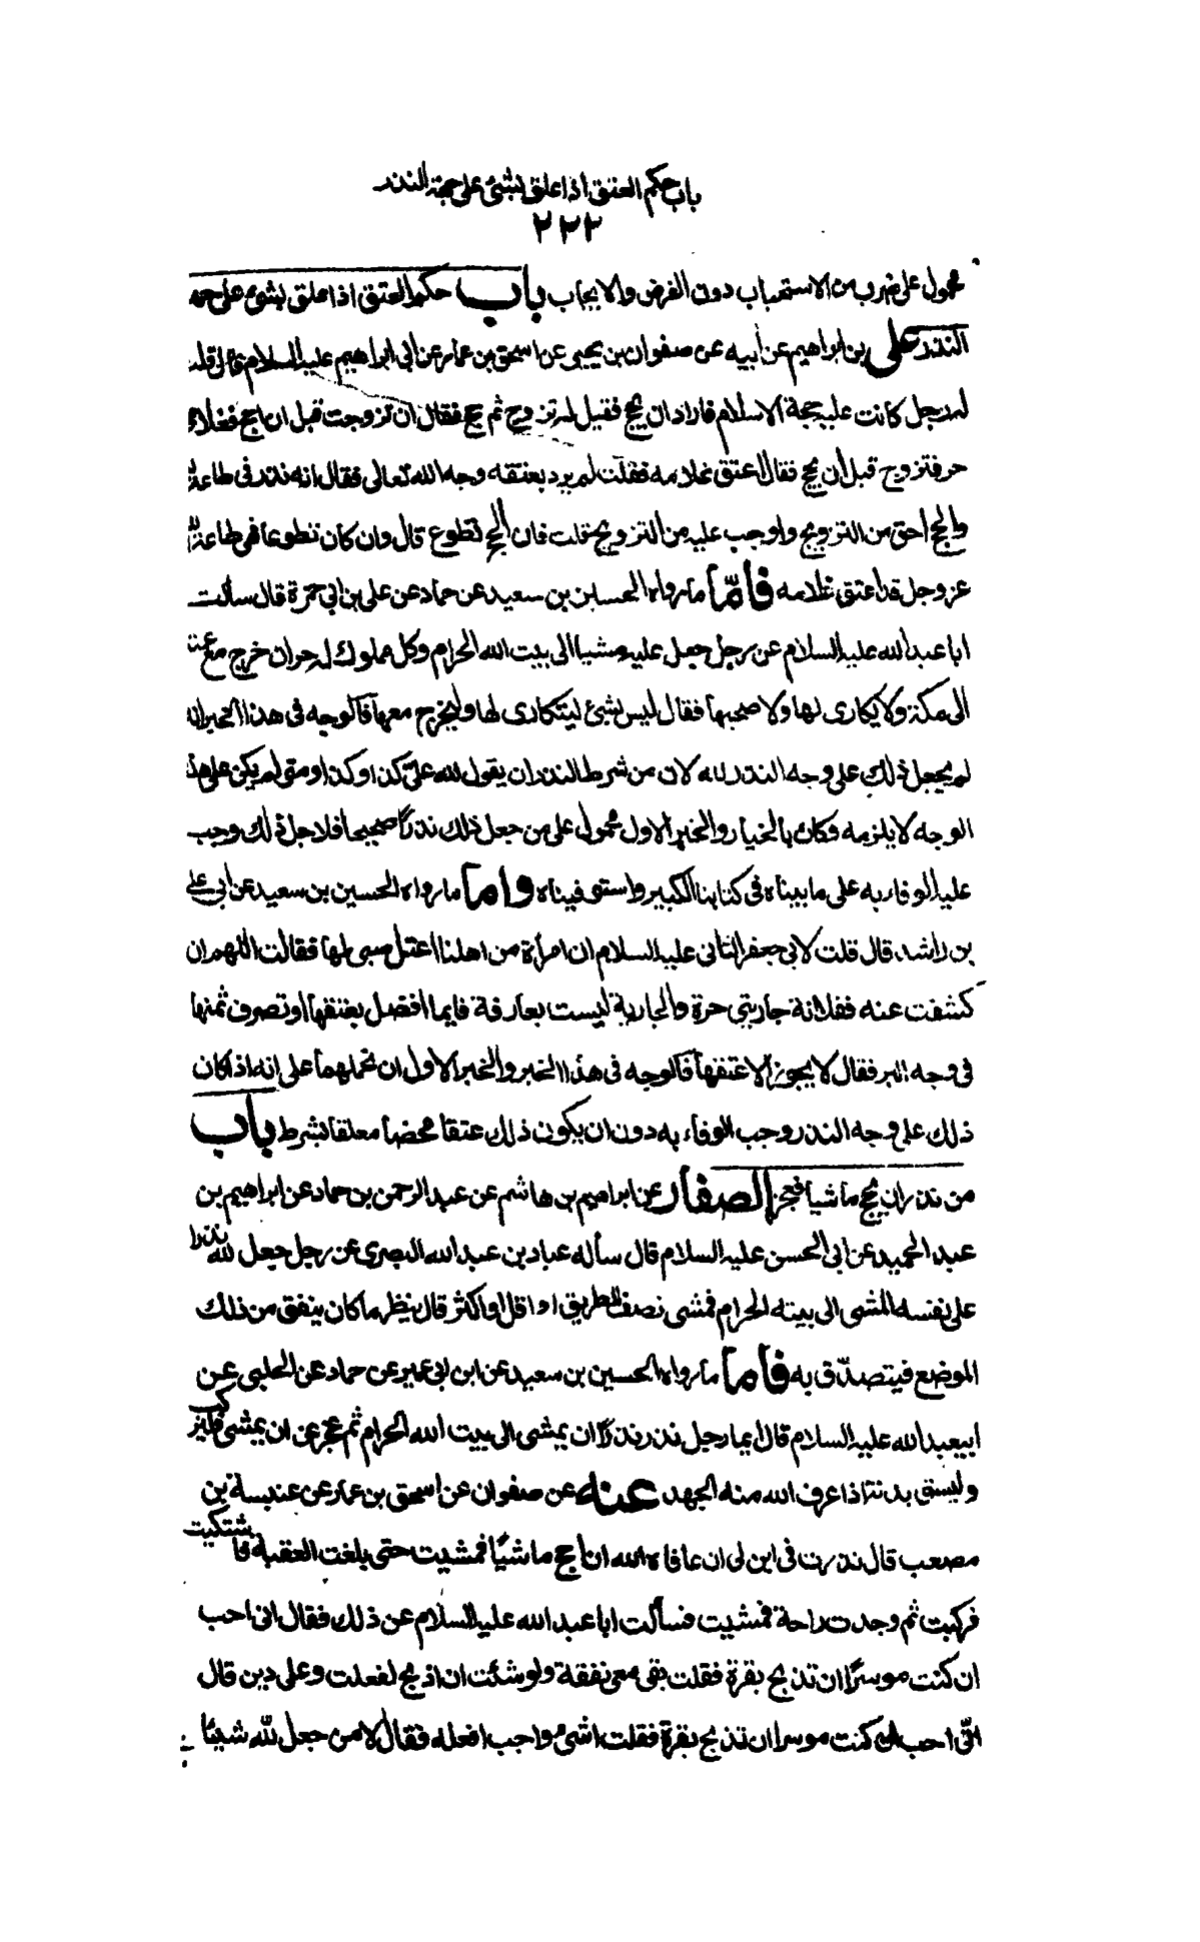 باب حكم العتق اذا علق بشئ على جهة النذر
٢٢٢
محمول على ضرب من الاستحباب دون الفرض والايجاب باب حكم العتق اذا علق بشئ على جهه
النذر على بن ابراهيم عن أبيه عن صفوان بن يحيى عن اسحق بن عمار عن ابى ابراهيم عليه السلام قال قلت
له رجل كانت عليه حجة الاسلام فاراد ان يحج فقيل له تزوج ثم حج فقال ان تزوجت قبل ان احج فغلامى
حر فتزوج قبل أن يحج فقال اعتق غلامه فقلت لم يرد بعتقه وجه الله تعالى فقال انه نذر فى طاعة الله
والحج احق من التزويج واوجب عليه من التزويج قلت فان الحج تطوع قال وان كان تطوعا فهى طاعة لله
عز وجل قد اعتق غلامه فأمّا ما رواه الحسين بن سعيد عن حماد عن على بن ابى حمزة قال سألت
ابا عبدالله عليه السلام عن رجل جعل عليه مشيا الى بيت الله الحرام وكل مملوك له حر ان خرج مع عمته
الى مكة ولا يكارى لها ولا صحبها فقال ليس بشئ ليتكارى لها وليخرج معها فالوجه فى هذا الخبر انه
لم يجعل ذلك على وجه النذر لله لان من شرط النذر ان يقول لله علىّ كذا وكذا ومتى لم يكن على هذا
الوجه لا يلزمه وكان بالخيار والخبر الاول محمول على من جعل ذلك نذراً صحيحا فلاجل ذلك وجب
عليه الوفاء به على ما بيناه فى كتابنا الكبير واستوفيناه وأما ما رواه الحسين بن سعيد عن ابى على
بن راشد قال قلت لابى جعفر الثانى عليه السلام ان امرأة من اهلنا اعتل صبى لها فقالت اللهم ان
كشفت عنه ففلانة جاريتى حرة والجارية ليست بعارفة فايما افضل يعتقها او تصرف ثمنها
فى وجه البر فقال لا يجوز الا عتقها فالوجه فى هذا الخبر والخبر الاول ان نحملهما على انه اذا كان
ذلك على وجه النذر وجب الوفاء به دون ان يكون ذلك عتقا محضا معلقا بشرط باب
من نذر ان يحج ماشيا فعجز الصفار عن ابراهيم بن هاشم عن عبدالرحمن بن حماد عن ابراهيم بن
عبد الحميد عن ابى الحسن عليه السلام قال سأله عباد بن عبد الله البصرى عن رجل جعل لله نذرا
على نفسه المشى الى بيته الحرام فمشى نصف الطريق او اقل او اكثر قال ينظر ما كان ينفق من ذلك
الموضع فيتصدّق به فأما ما رواه الحسين بن سعيد عن ابن ابى عمير عن حماد عن الحلبى عن
ابيعبدالله عليه السلام قال ايما رجل نذر نذراً ان يمشى الى بيت الله الحرام ثم عجز عن ان يمشى فليركب
وليسق بدنة اذا عرف الله منه الجهد عنه عن صفوان عن اسحق بن عمار عن عنبسة بن
مصعب قال نذرت فى ابن لى ان عافاه الله ان احج ماشيًا فمشيت حتى بلغت العقبة فاشتكيت
فركبت ثم وجدت راحة فمشيت فسألت ابا عبدالله عليه السلام عن ذلك فقال انى احب
ان كنت موسرًا ان تذبح بقرة فقلت بقى معى نفقة ولو شئت ان اذبح لفعلت وعلى دين قال
انّى احب ان كنت موسرا ان تذبح بقرة فقلت اشئ واجب افعله فقال لا من جعل لله شيئا